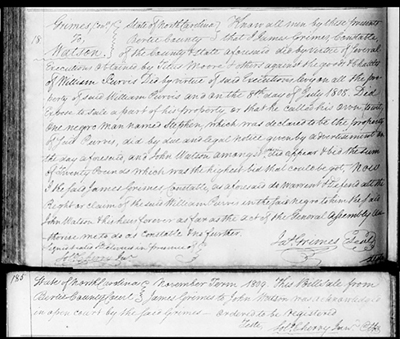 Grimes Con. State of North Carolina Know all men by these presents
18 To Bertie County that I James Grimes Constable
Watson of the County & State aforesaid did by virtue of several
Executions obtained by Titus Moore & others against the goods & chattels
of William Purvis Did by virtue of said Executions levy on all the pro
perty of said William Purvis and on the 8th day of July 1808. Did
expose to sale a part of his property, or that he called his own, to wit,
One negro man named Stephen, which was declared to be the property
of said Purvis, did by due and legal notice given by advertisement on
the day aforesaid, and John Watson amongst appear & bid the sum
of Twenty Pounds which was the highest bid that could be got. Now
I the said James Grimes Constable, as aforesaid do warrant & defend all the
Right or claim of the said William Purvis in the said negro to him the said
John Watson & his heirs forever as far as the act of the General Assembly au
thorise me to do as Constable & no further.
Signed Sealed & Delivered in presence of Jas Grimes Seal
185 State of North Carolina November Term 1809. This Bill Sale from
Bertie County James Grimes to John Watson was acknowledged
in open court by the said Grimes — Ordered to be Registered
Teste,